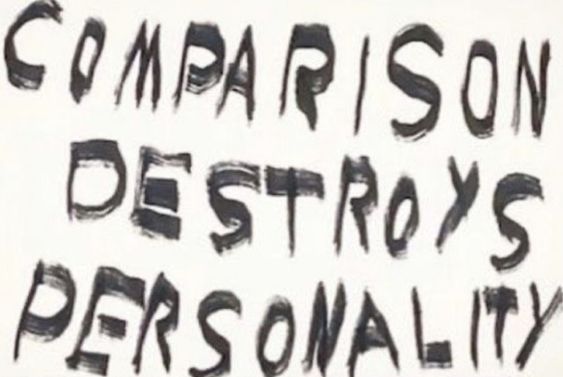 COMPARISON
DESTROYS
PERSONALITY